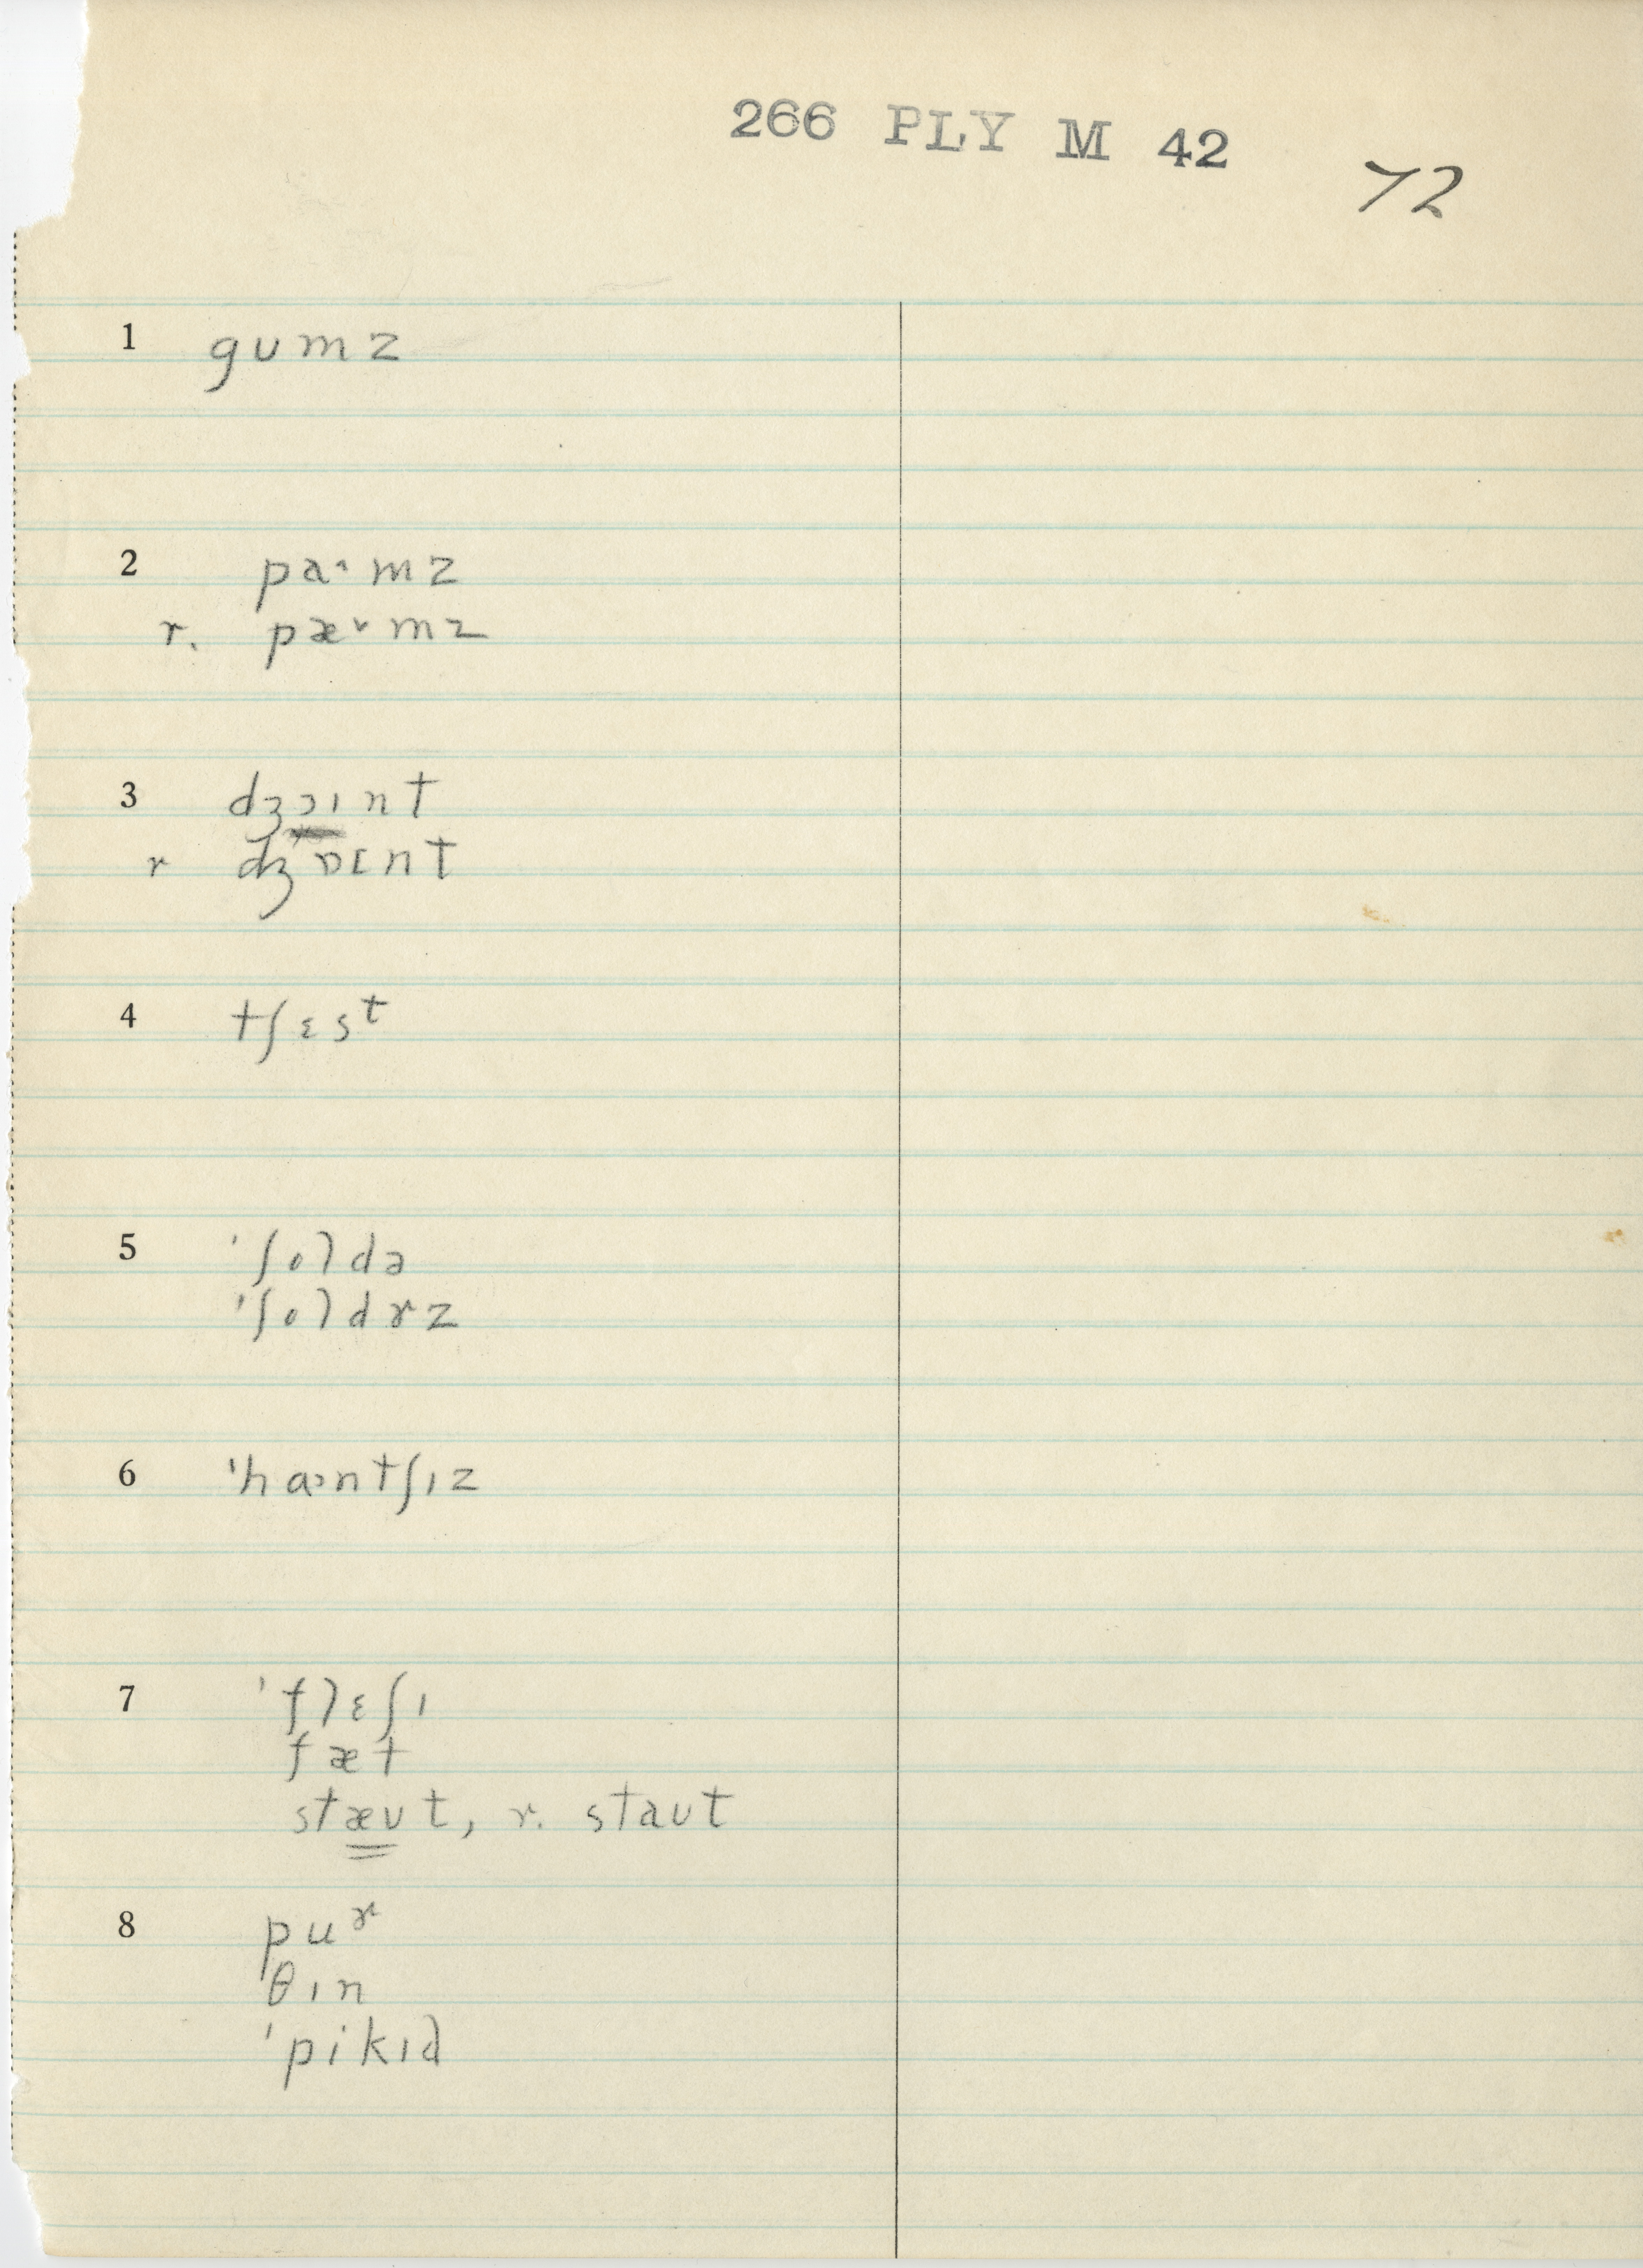 266 PLY M 42
72
1 gʊmz
2 pɑ˄mz
r. pæ˅mz
3 dʒɔɪnt
r dʒɒɪnt
4 tʃɛsᵗ
5 'ʃoldə
'ʃoldɚz
6 'hɑ˃ntʃɪz
7 'flɛʃɪ
fæt
stæʊt, r. staʊt
8 puɚ
θɪn
'pikɪd